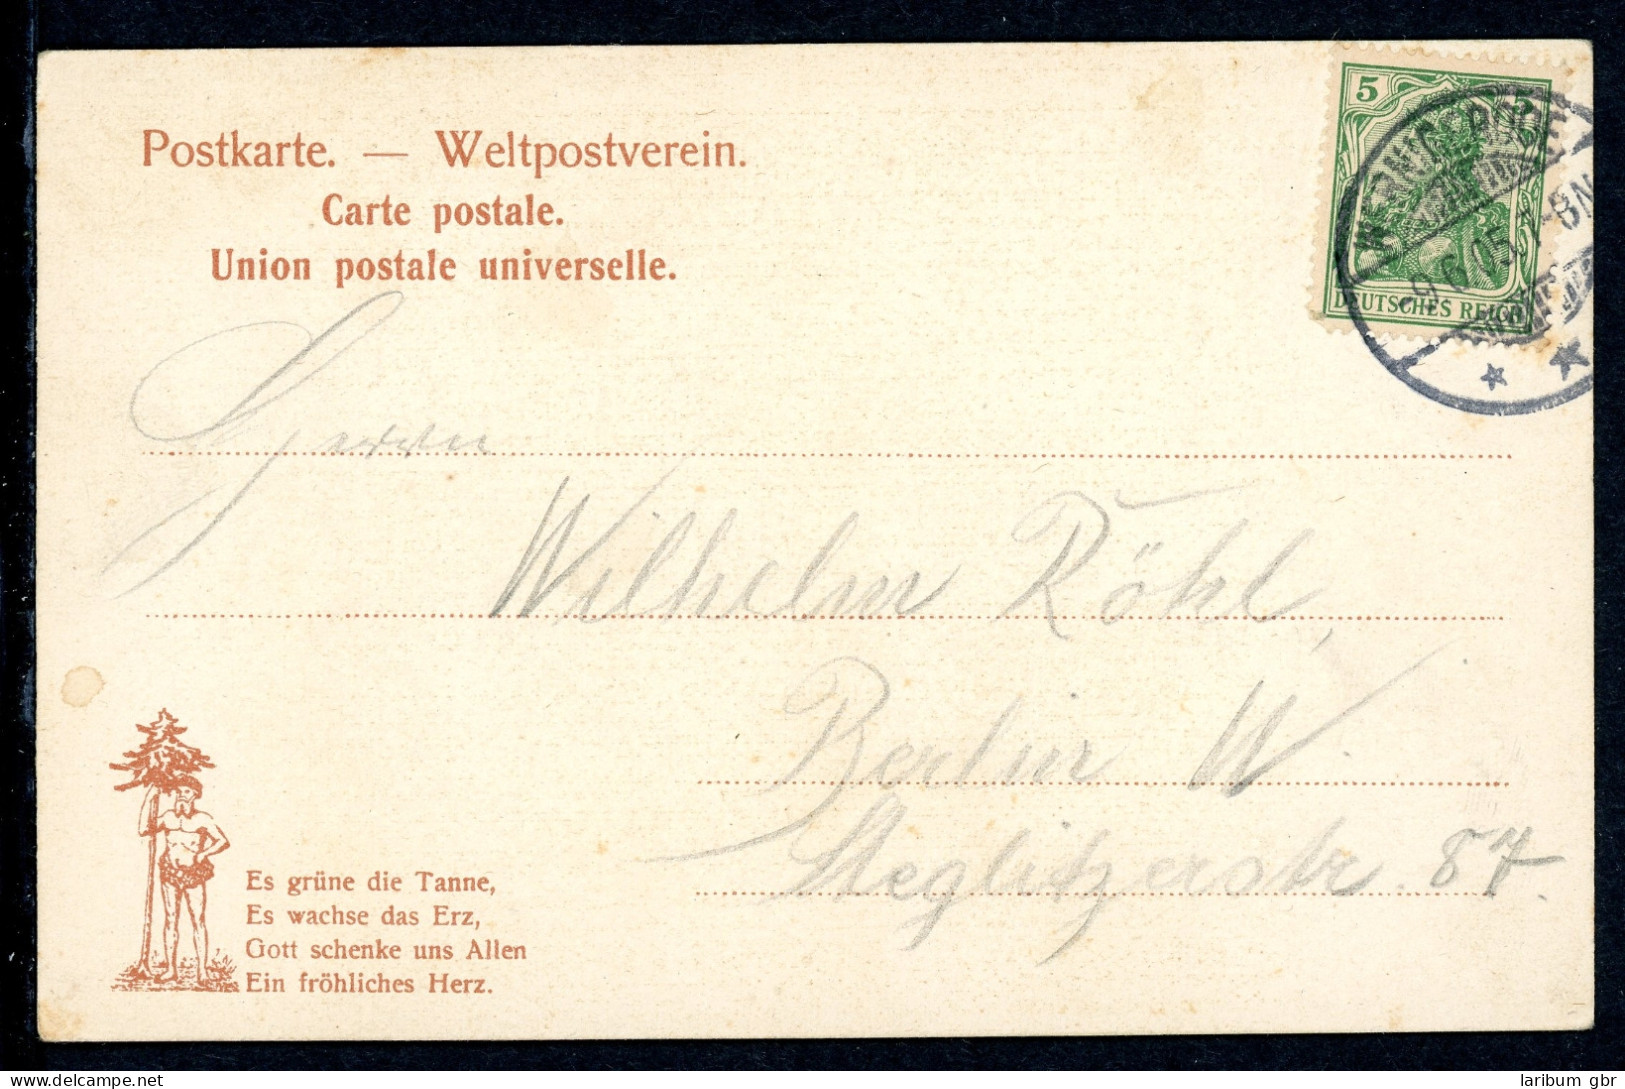 Postkarte. — Weltpostverein.
Carte postale.
Union postale universelle.
5 5
DEUTSCHES REICH
WERNIGERODE
-9.6.05.7-8N.
Herrn
Wilhelm Röhl,
Berlin W
Steglitzerstr. 87.
Es grüne die Tanne,
Es wachse das Erz,
Gott schenke uns Allen
Ein fröhliches Herz.
laribum gbr